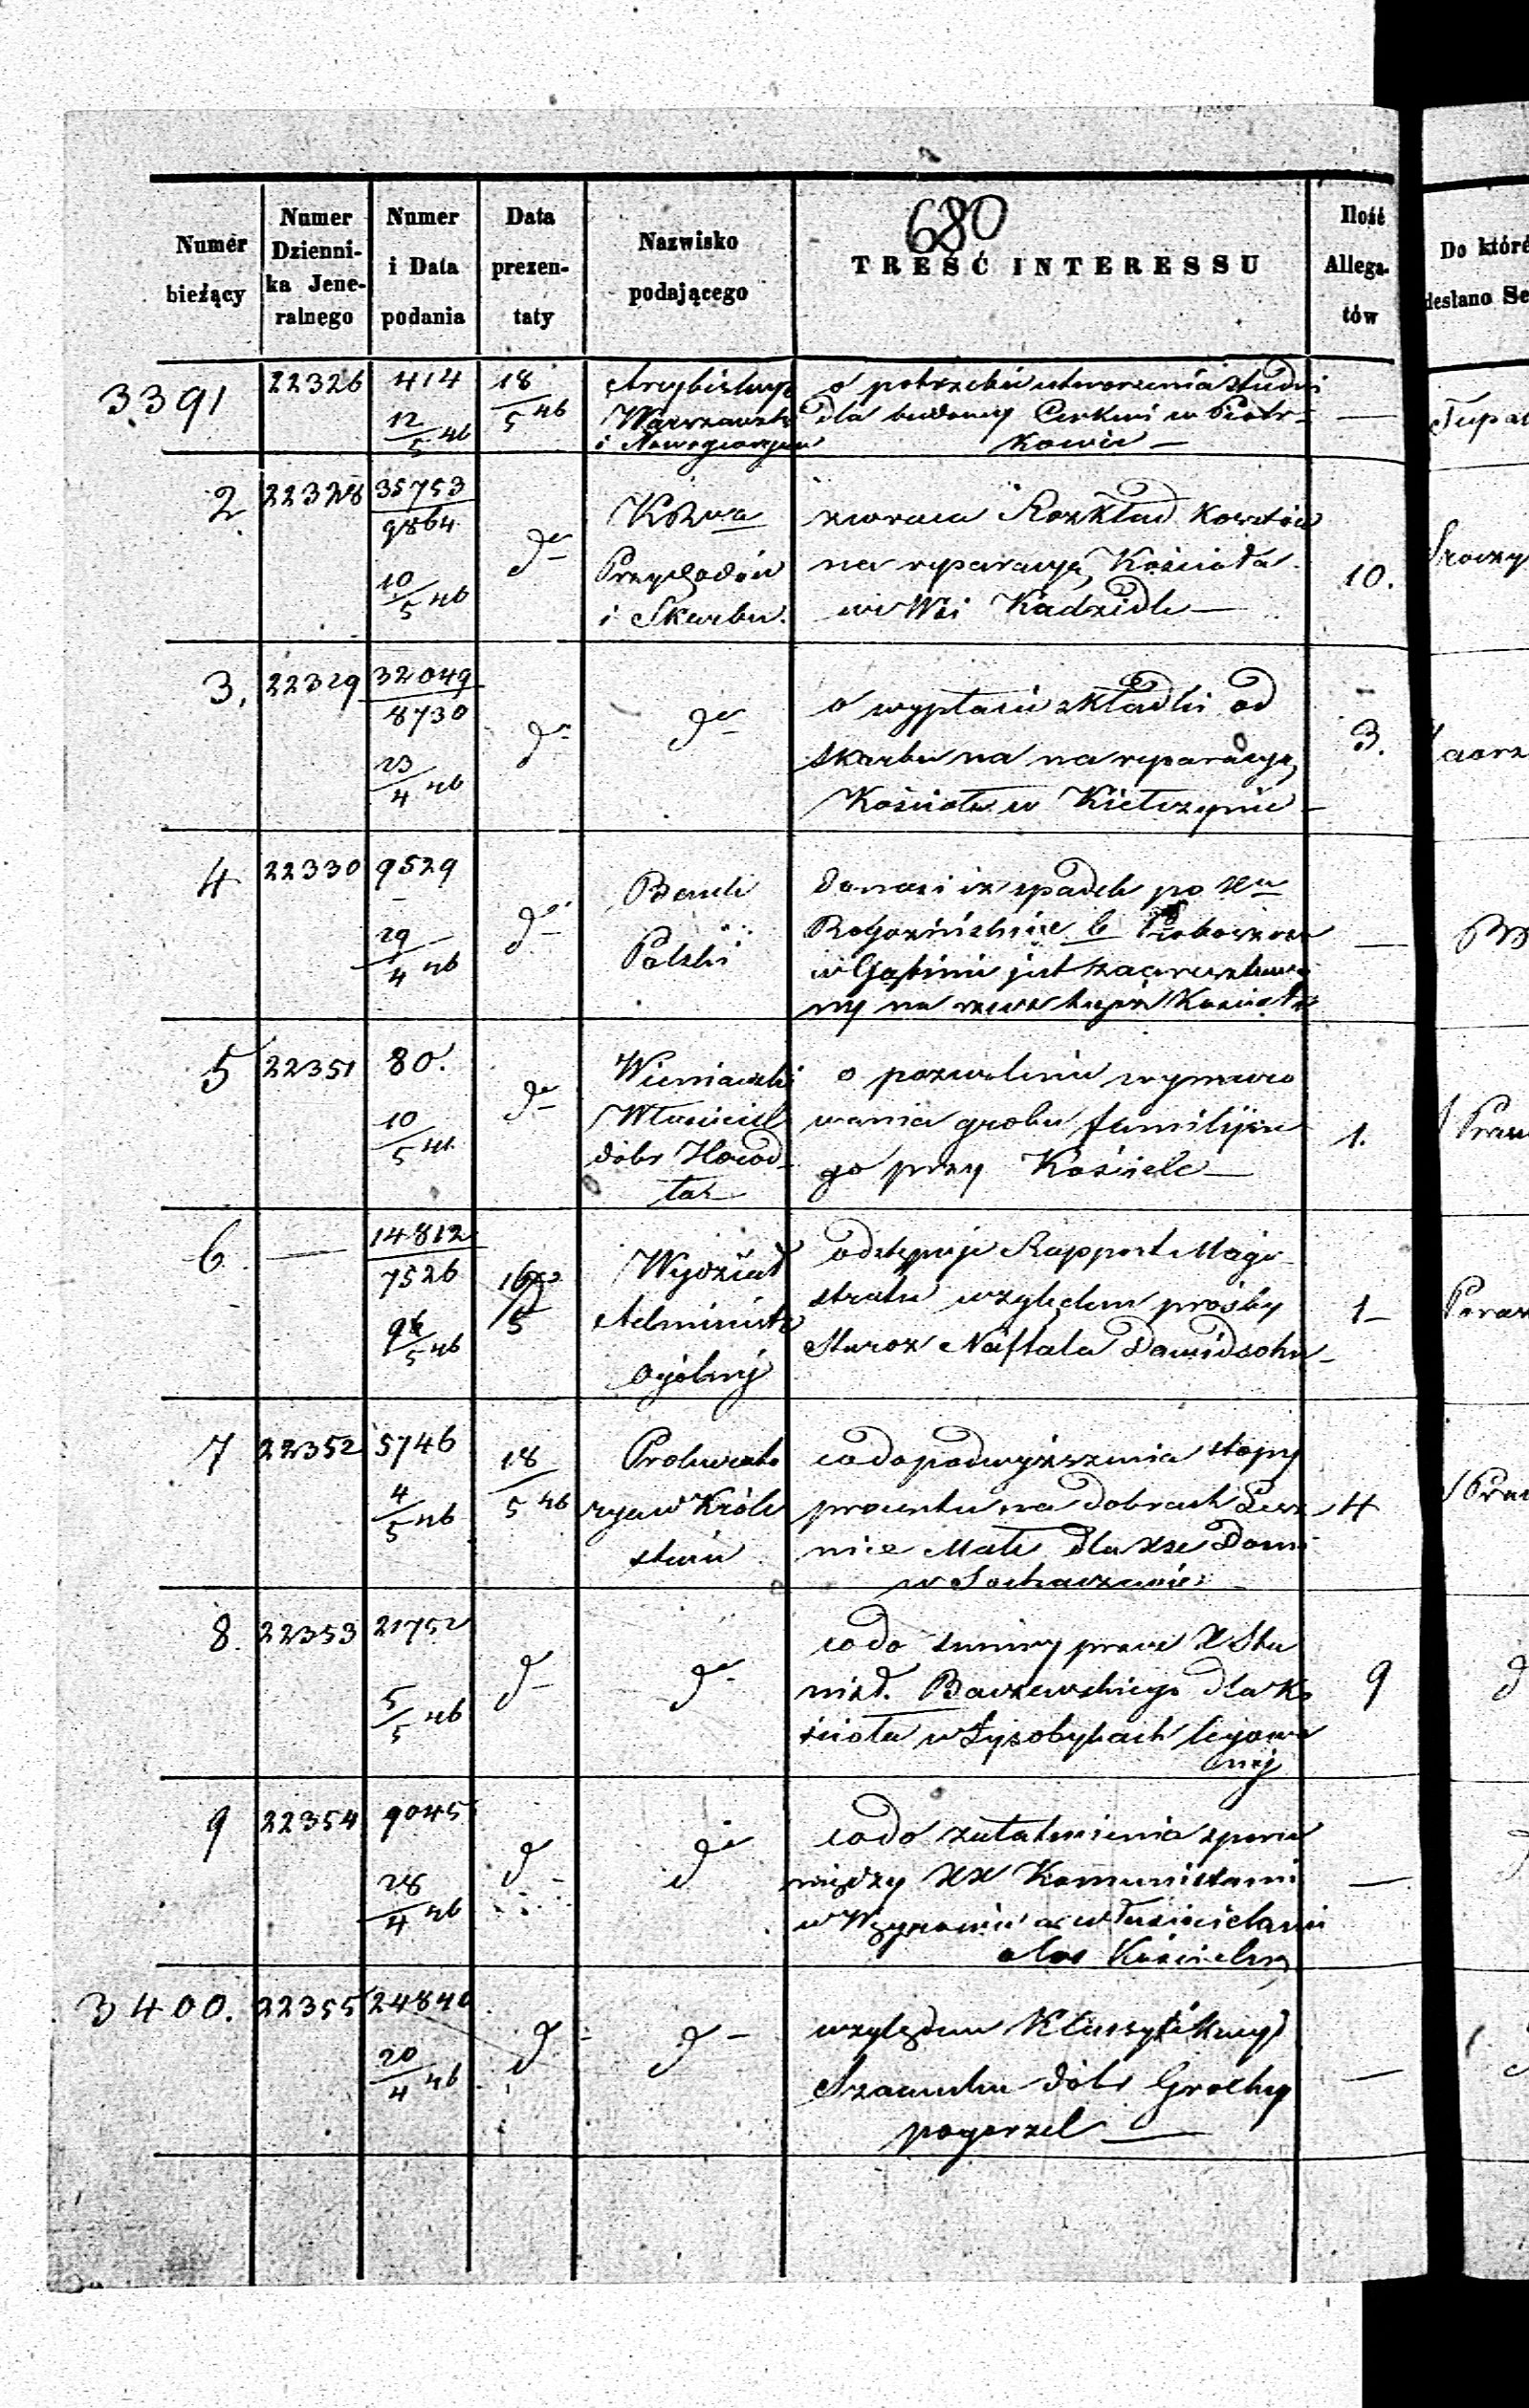 680
Numer bieżący
Numer Dzienni-ka Jene-ralnego
Numer i Data podania
Data prezen-taty
Nazwisko podającego
TREŚĆ INTERESSU
Ilość Allega-tów
Do któré
desłano Se
3391 22326 414 12/5 46 18/5 46
Arcybiskup
Warszawski
i Nowogeorgiew
o potrzebie utworzenia studni
dla budowy Cerkwi w Piotr-
kowie —
—
2 22328 35753/9864 10/5 46 do
Przychodów
i Skarbu.
zwraca Rozkład kosztów
na reparacyą Kościoła
we Wsi Kadzidle —
10.
3. 22329 32049/8730 23/4 46 do
do
o wypłacie składki od
skarbu na na reparacyą
Kościoła w Kiełczynie —
3.
4 22330 9529 29/4 46 do
Bank
Polski
donosi iż spadek po
Rogozińskim b Proboszczu
w Gąbinie jest
ny na rzecz Kościoła
—
5 22351 80. 10/5 46 do
Wieniawski
Właściciel
dóbr
o pozwolenie wymuro
wania grobu familijne
go przy Kościele —
1.
6 — 14812/7526 5 46 16/5
Wydział
Administr
ogólny
odstępuje Rapport Magi-
stratu względem prośby
Staroz Naftala Dawidsohn —
1 —
7 22352 5746 4/5 46 18/5 46
Prokurato
rya w Króle
stwie
co do podwyższenia stopy
procentu na dobrach
nice Małe dla
w Sochaczewie
4
8. 22353 21752 5/5 46 do
do
co do summy przez X Sta
nisł. Baczewskiego dla Ko
ścioła w Łysobykach legowa
nej
9
9 22354 9045 28/4 46 do
do
co do załatwienia sporu
między XX Kommunistami
w Węgrowie a właścicielami
o las Kościelny
—
3400. 22355 24840 20/4 46 do
do
względem Klassyfikacyi
Szacunku dóbr Grochy
pogorzel —
—